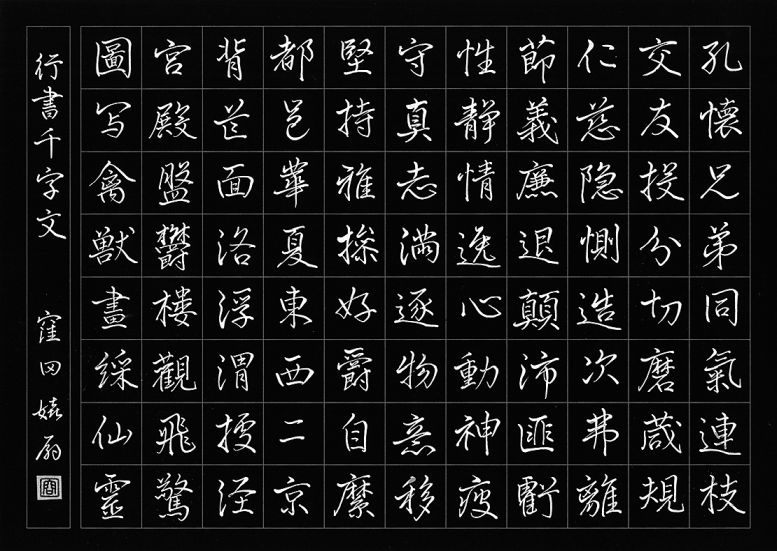 孔懷兄弟同氣連枝
交友投分切磨箴規
仁慈隠惻造次弗離
節義廉退顛沛匪虧
性静情逸心動神疲
守真志満逐物意移
堅持雅操好爵自縻
都邑華夏東西二京
背芒面洛浮渭據涇
宮殿盤鬱樓觀飛驚
圖写禽獣畫綵仙靈
行書千字文
窪田